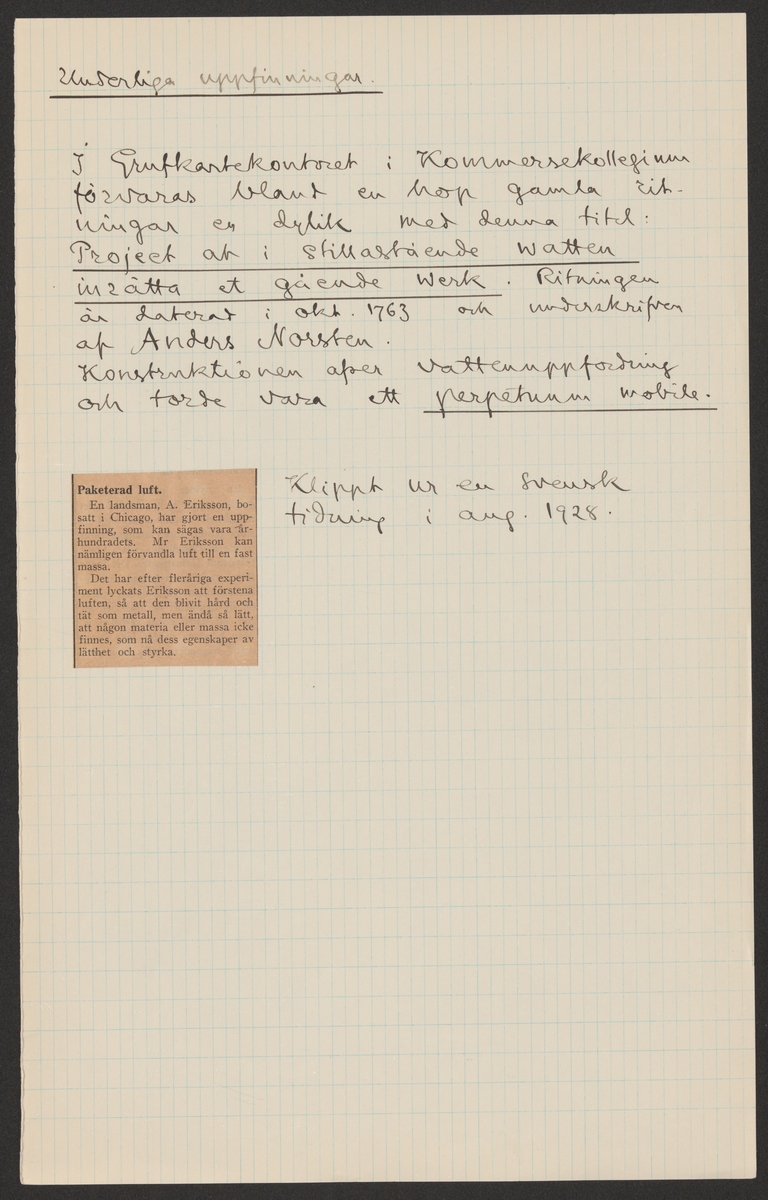 Underliga uppfinningar.
I Grufkartekontoret i Kommersekollegium
förvaras bland en hop gamla rit-
ningar en dylik med denna titel:
Project at i stillastående watten
inrätta et gående Werk. Ritningen
är daterad i okt. 1763 och underskrifven
af Anders Norsten.
Konstruktionen afser vattenuppfordring
och torde vara ett perpetuum mobile.
Paketerad luft.
En landsman, A. Eriksson, bo-
satt i Chicago, har gjort en upp-
finning, som kan sägas vara år-
hundradets. Mr Eriksson kan
nämligen förvandla luft till en fast
massa.
Det har efter fleråriga experi-
ment lyckats Eriksson att förstena
luften, så att den blivit hård och
tät som metall, men ändå så lätt,
att någon materia eller massa icke
finnes, som nå dess egenskaper av
lätthet och styrka.
Klippt ur en svensk
tidning i aug. 1928.